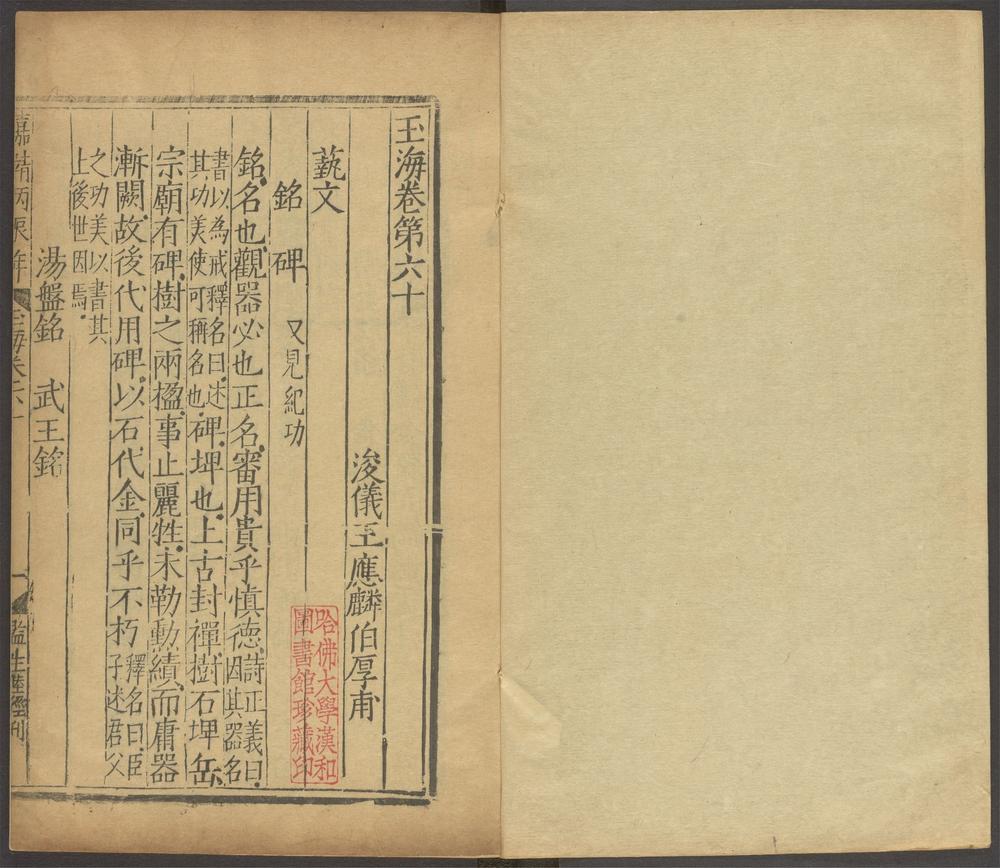 玉海卷第六十
浚儀王應麟伯厚甫
藝文
銘 碑 又見紀功
銘名也觀器必也正名審用貴乎慎德詩正義曰因其器名
書以為戒釋名曰述其功美使可稱名也碑埤也上古封禪樹石埤岳
宗廟有碑樹之兩楹事止麗牲未勒勳績而庸器
漸闕故後代用碑以石代金同乎不朽釋名曰臣子述君父
之功美以書其上後世因焉
湯盤銘 武王銘
嘉靖丙辰年
玉海卷六十
一
監生陸 刊
哈佛大學漢和
圖書館珍藏印